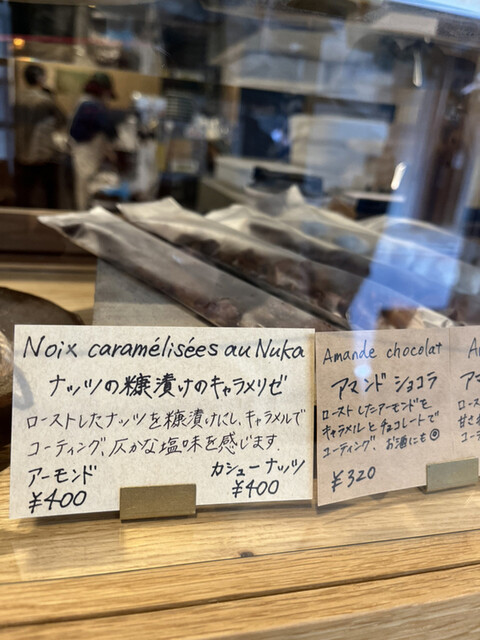 Noix caramélisées au Nuka
ナッツの糠漬けのキャラメリゼ
ローストしたナッツを糠漬けにし、キャラメルで
コーティング、仄かな塩味を感じます。
アーモンド
¥400
カシューナッツ
¥400
Amande chocolat
アマンド ショコラ
ローストしたアーモンドを
キャラメルとチョコレートで
コーティング、お酒にも◎
¥320